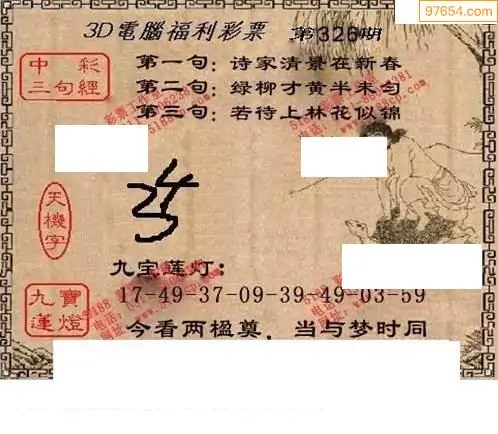 97654.com
3D電腦福利彩票 第326期
中彩
三句經
第一句：诗家清景在新春
第二句：绿柳才黄半未匀
第三句：若待上林花似锦
天機字
九宝莲灯：
九寶
蓮燈
17-49-37-09-39-49-03-59
今看两楹奠，当与梦时同